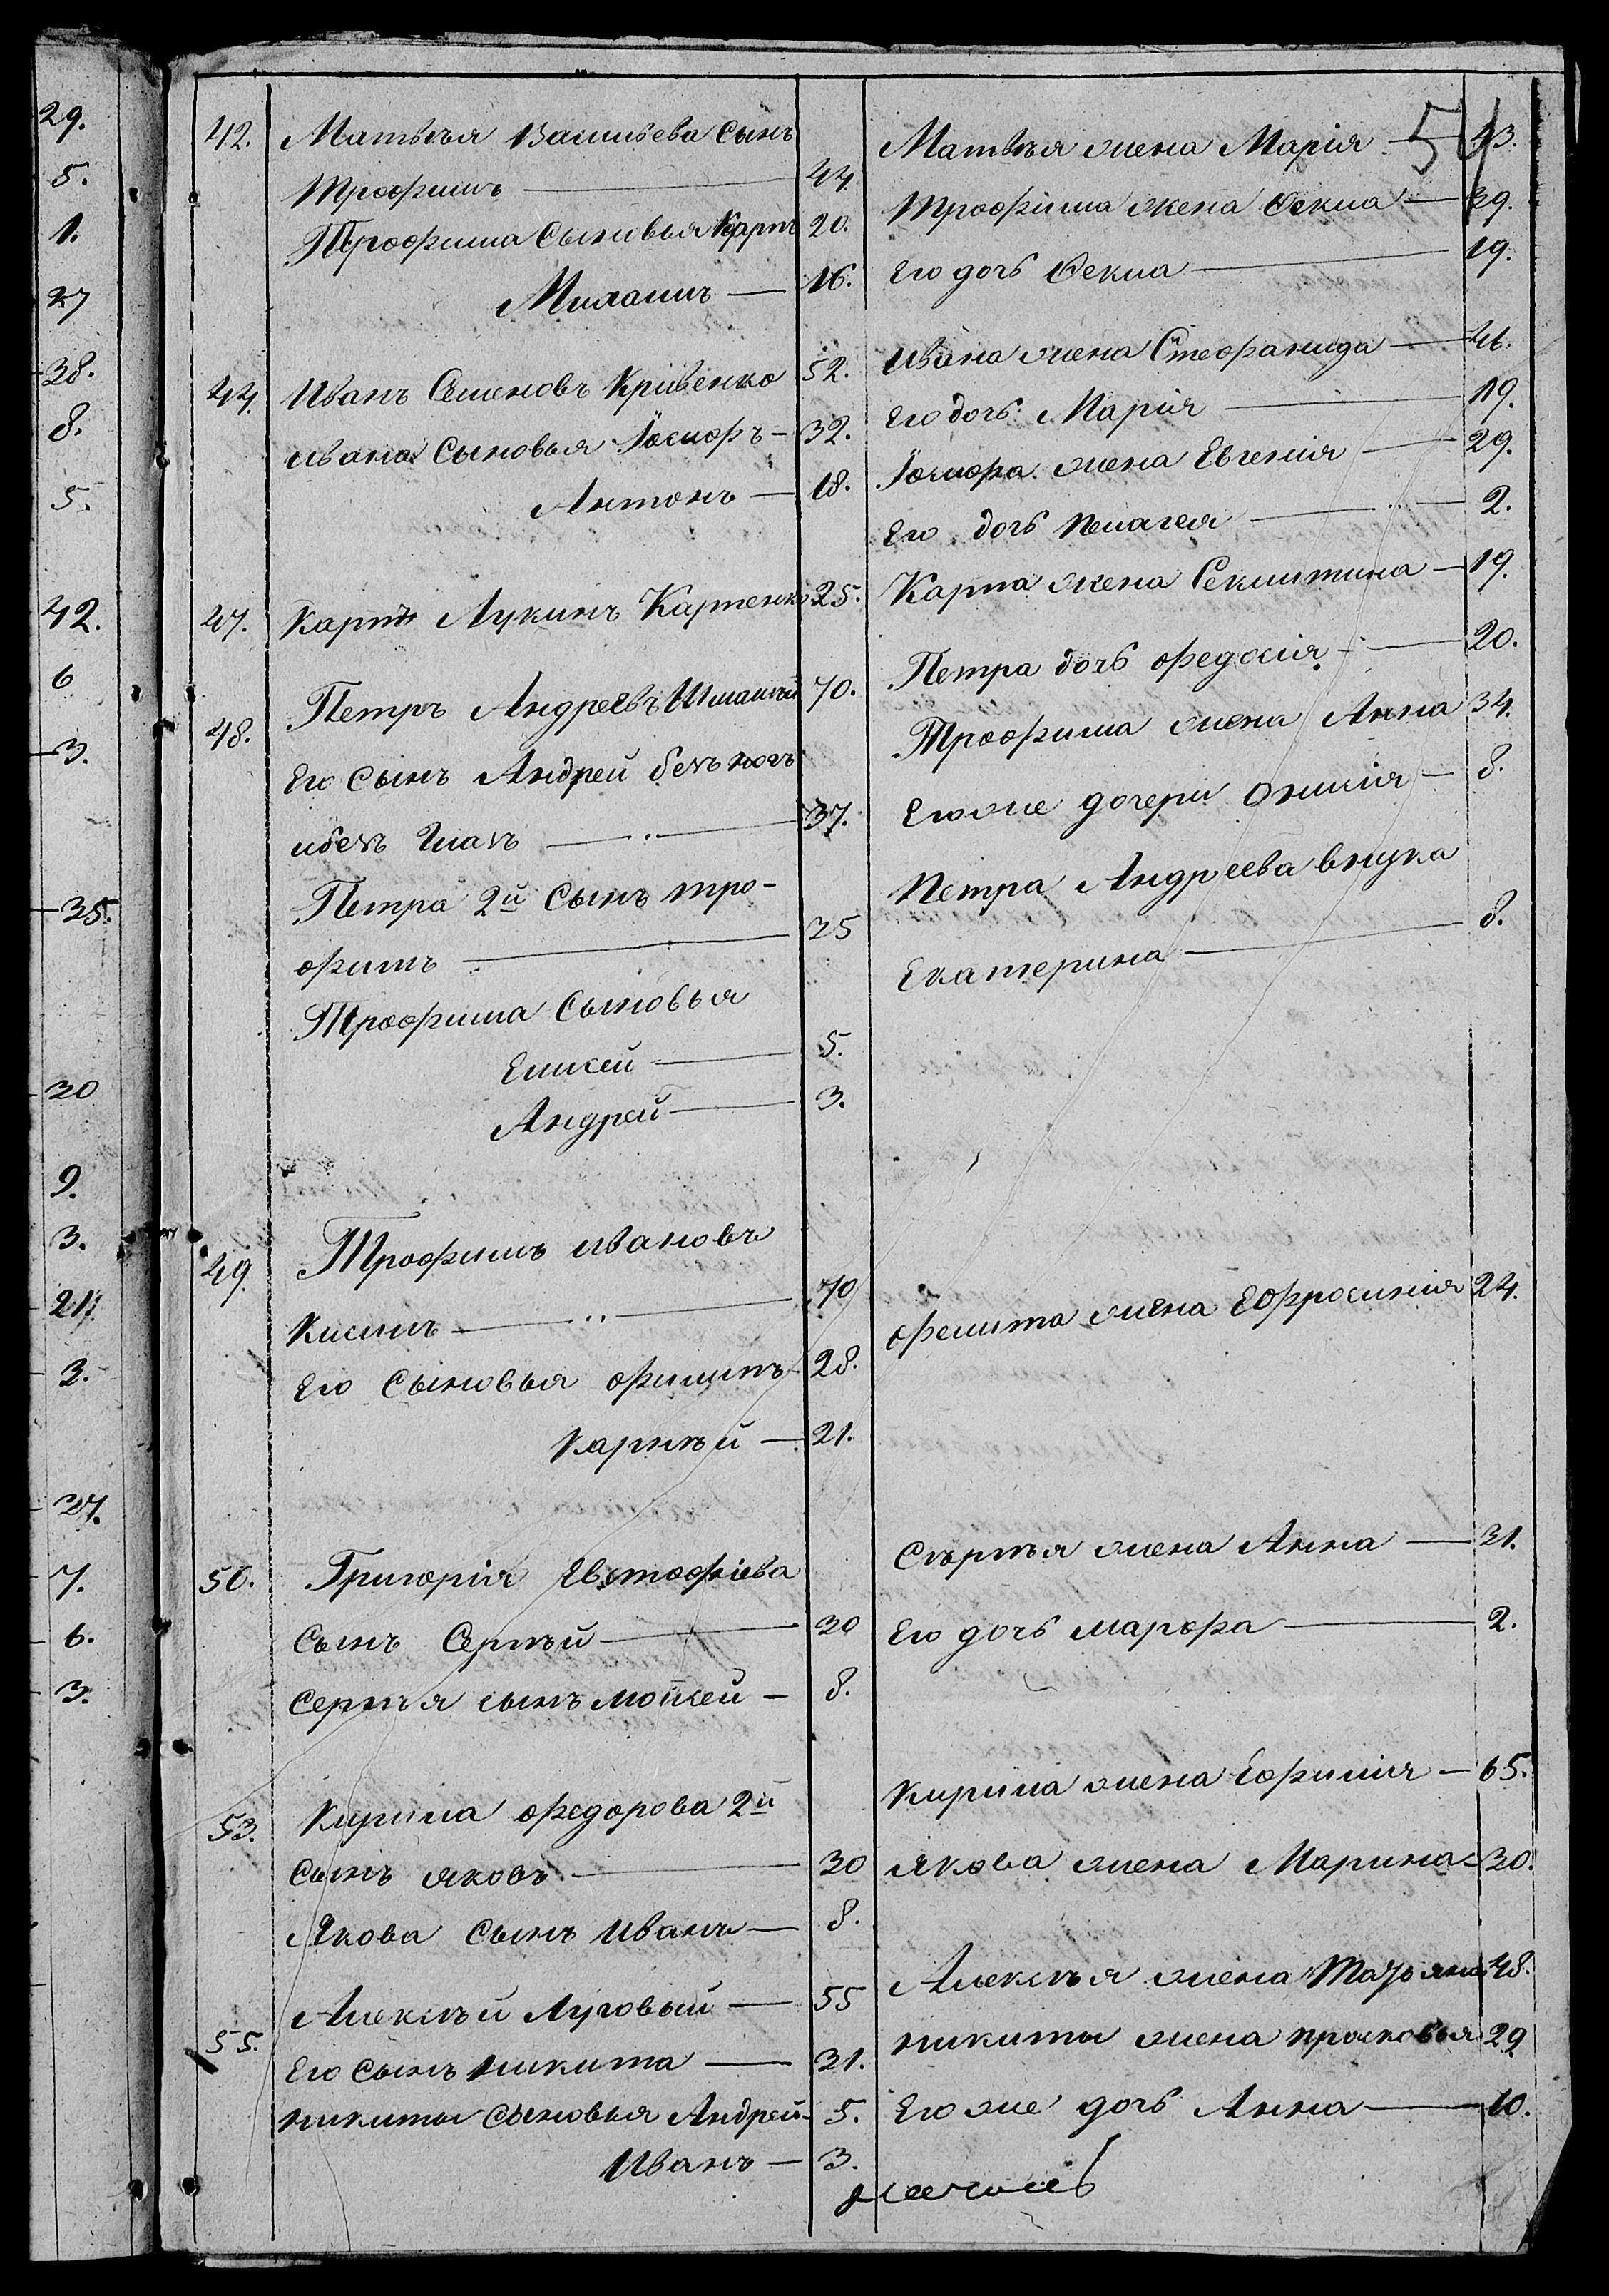 29.
5.
1.
27
38.
8.
5.
42.
6
3.
35.
30
9.
3.
21.
3.
27.
7.
6.
3.
54
42. Матвѣя Васильева Сынъ
Трофимъ — 44.
Трофима Сыновья Карпъ 20.
— 16.
44. Иванъ Семеновъ Кривенко 52.
Ивана Сыновья Іосифъ — 32.
Антонъ — 18.
47. Карпъ Лукинъ Карпенко 25.
48. Петръ Андреевъ 70.
Его Сынъ Андрей безъ ногъ
и безъ Глазъ — 37.
Петра 2й Сынъ Тро-
фимъ — 35
Трофима Сыновья
Елисей — 5.
Андрей — 3.
49. Трофимъ Ивановъ
— 70
Его Сыновья Филипъ 28.
Карнѣй — 21.
50. Григорія Евстафіева
Сынъ Сергѣй — 30
Сергѣя сынъ Мойсей — 8.
53. Кирила Федорова 2й
Сынъ Яковъ — 30
Якова Сынъ Иванъ — 8.
55. Алексѣй Луговый — 55
Его Сынъ Никита — 31.
Никиты Сыновья Андрей — 5.
Иванъ — 3.
Матвѣя жена Марія — 43.
Трофима жена Фекла — 39.
Его дочь Фекла — 19.
Ивана жена Стефанида — 46.
Его дочь Марія — 19.
Іосифа жена Евгенія — 29.
Его дочь Пелагея — 2.
Карпа жена Секлитина — 19.
Петра дочь Федосія — 20.
Трофима жена Анна 34.
Его же дочери — 8.
Петра Андреева внука
Екатерина — 8.
Филипа жена Ефросинія 24.
Сѣргѣя жена Анна — 31.
Его дочь Марфа — 2.
Кирила жена Ефимія — 65.
Якова жена Марина — 30.
Алексѣя жена Татьяна 48.
Никиты жена Прасковья 29
Его же дочь Анна — 10.